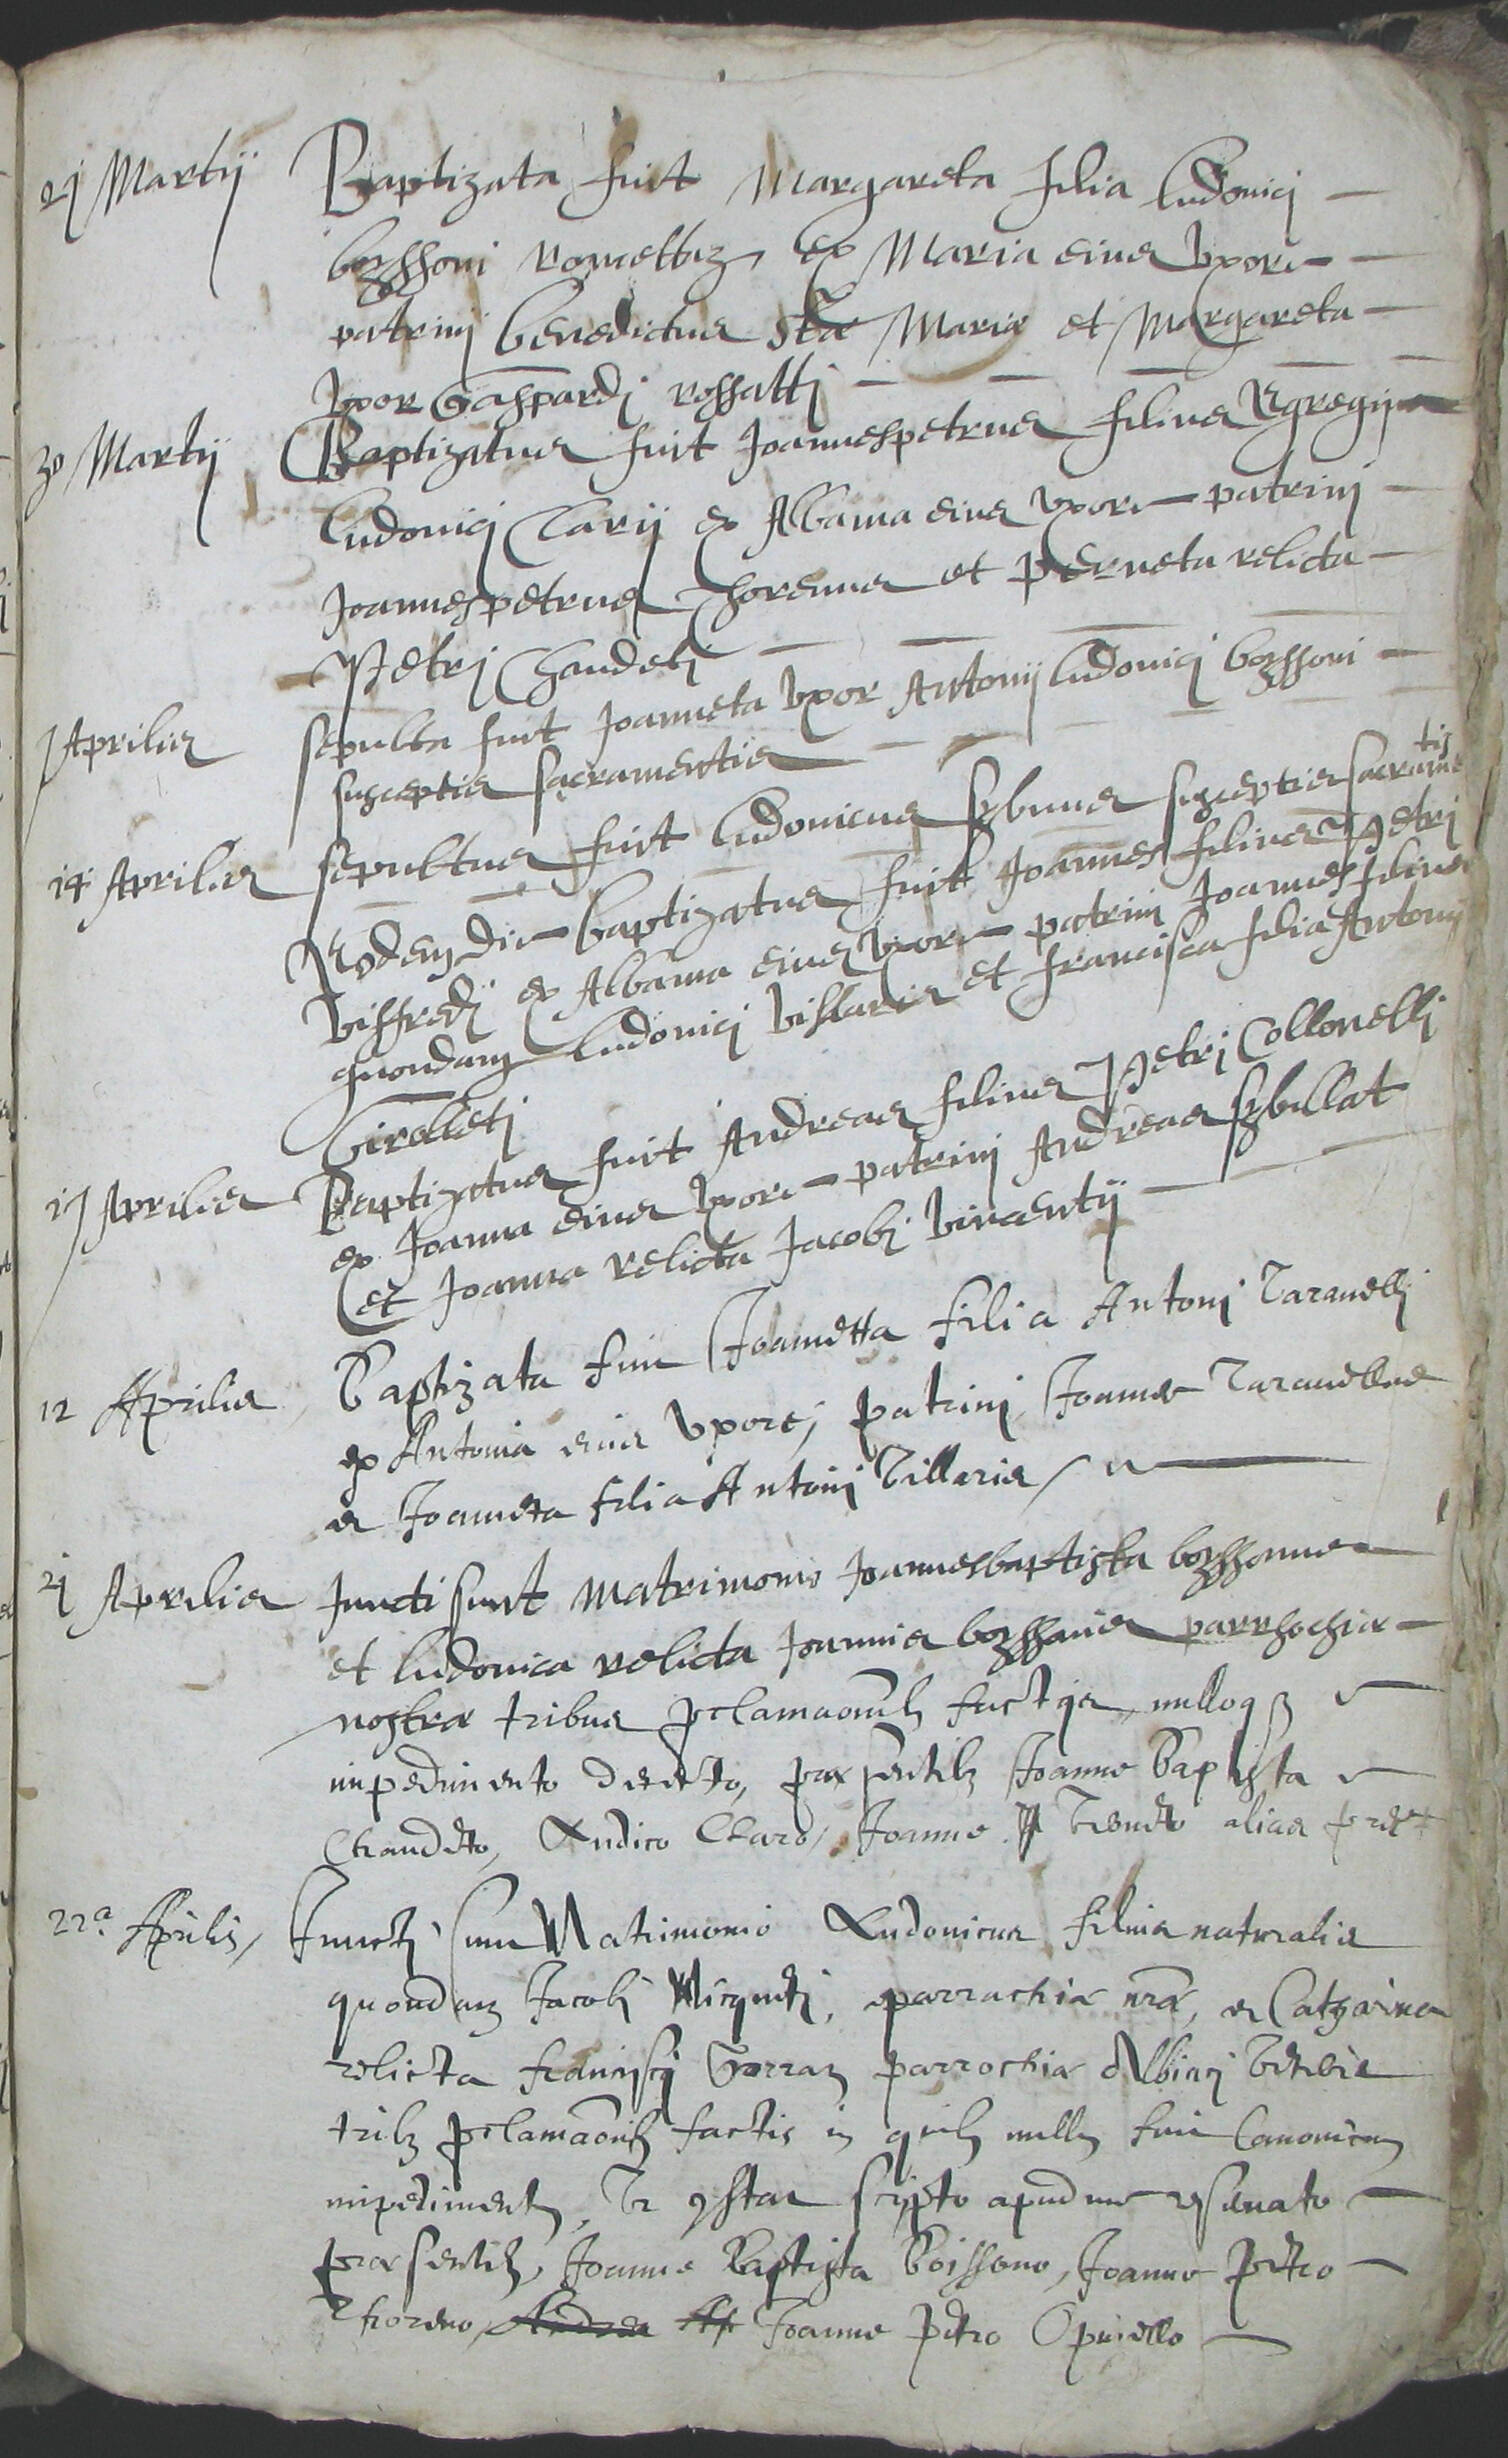 21 Martij Baptizata fuit Margareta filia ludovici
boyssoni ex Maria eius uxore
patrini benedictus sta Maria et Margareta
uxor Gaspardi rossatti
30 Martij Baptizatus fuit Joannespetrus filius Egregij
ludovici Clarij ex Albama eius uxore patrini
Joannespetrus Thorenus et perneta relicta
Petri Chaudeti
7 Aprilis sepulta fuit Joanneta uxor Antonij ludovici boyssoni
susceptis sacramentis
14 Aprilis sepultus fuit ludovicus susceptis sacramentis
Eodem die baptizatus fuit Joannes filius Petri
viffredi ex Albama eius uxore patrini Joannes filius
quondam ludovici villaris et francisca filia Antonij
Girolleti
17 Aprilis Baptizatus fuit Andreas filius Petri Collonelli
ex Joanna eius uxore patrini Andreas sybillat
et Joanna relicta Jacobi vincentij
12 Aprilis Baptizata fuit Joannetta filia Antonij Taranelli
ex Antonia eius uxore, patrini Joannes Taranellus
et Joanneta filia Antonij Villaris
21 Aprilis Juncti sunt matrimonio Joannesbaptista boyssonus
et ludovica relicta Joannis boyssonis parrhochiæ
nostræ tribus proclamaonib factis, nulloq
impedimento detecto, præsentib Joanne Baptista
Chaudeto, Ludico Claro, Joanne alias
22a Aprilis, Juncti sunt Matrimonio Ludovicus filius naturalis
quondam Jacobi Micqueti, parrochiæ nræ, et Catharina
relicta francisci parrochiæ Albiaci veteris
trib proclamaonib factis in quib nullu fuit Canonicum
impedimentu, Ut constat scripto apud me reservato
præsentib, Joanne Baptista Boissono, Joanne petro
Thoreno, Joanne petro Opinello